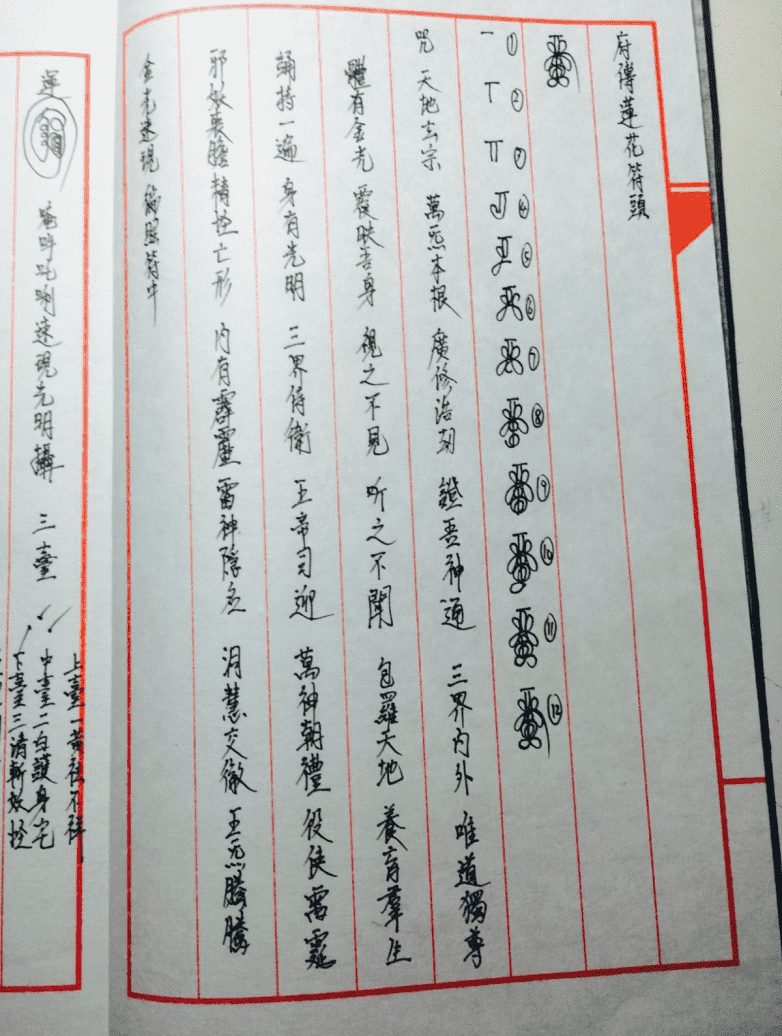 府傳蓮花符頭
① ② ③ ④ ⑤ ⑥ ⑦ ⑧ ⑨ ⑩ ⑪ ⑫
咒 天地玄宗 萬炁本根 廣修浩劫 證吾神通 三界內外 唯道獨尊
體有金光 覆映吾身 視之不見 听之不聞 包羅天地 養育羣生
誦持一遍 身有光明 三界侍衛 五帝司迎 萬神朝禮 役使雷霆
邪妖喪膽 精怪亡形 內有霹靂 雷神隱名 洞慧交徹 五炁騰騰
金光速現 符中
運
唵吽吒唎速現光明攝 三臺
上臺一黃祛不祥
中臺二白護身宅
下臺三清斬妖怪